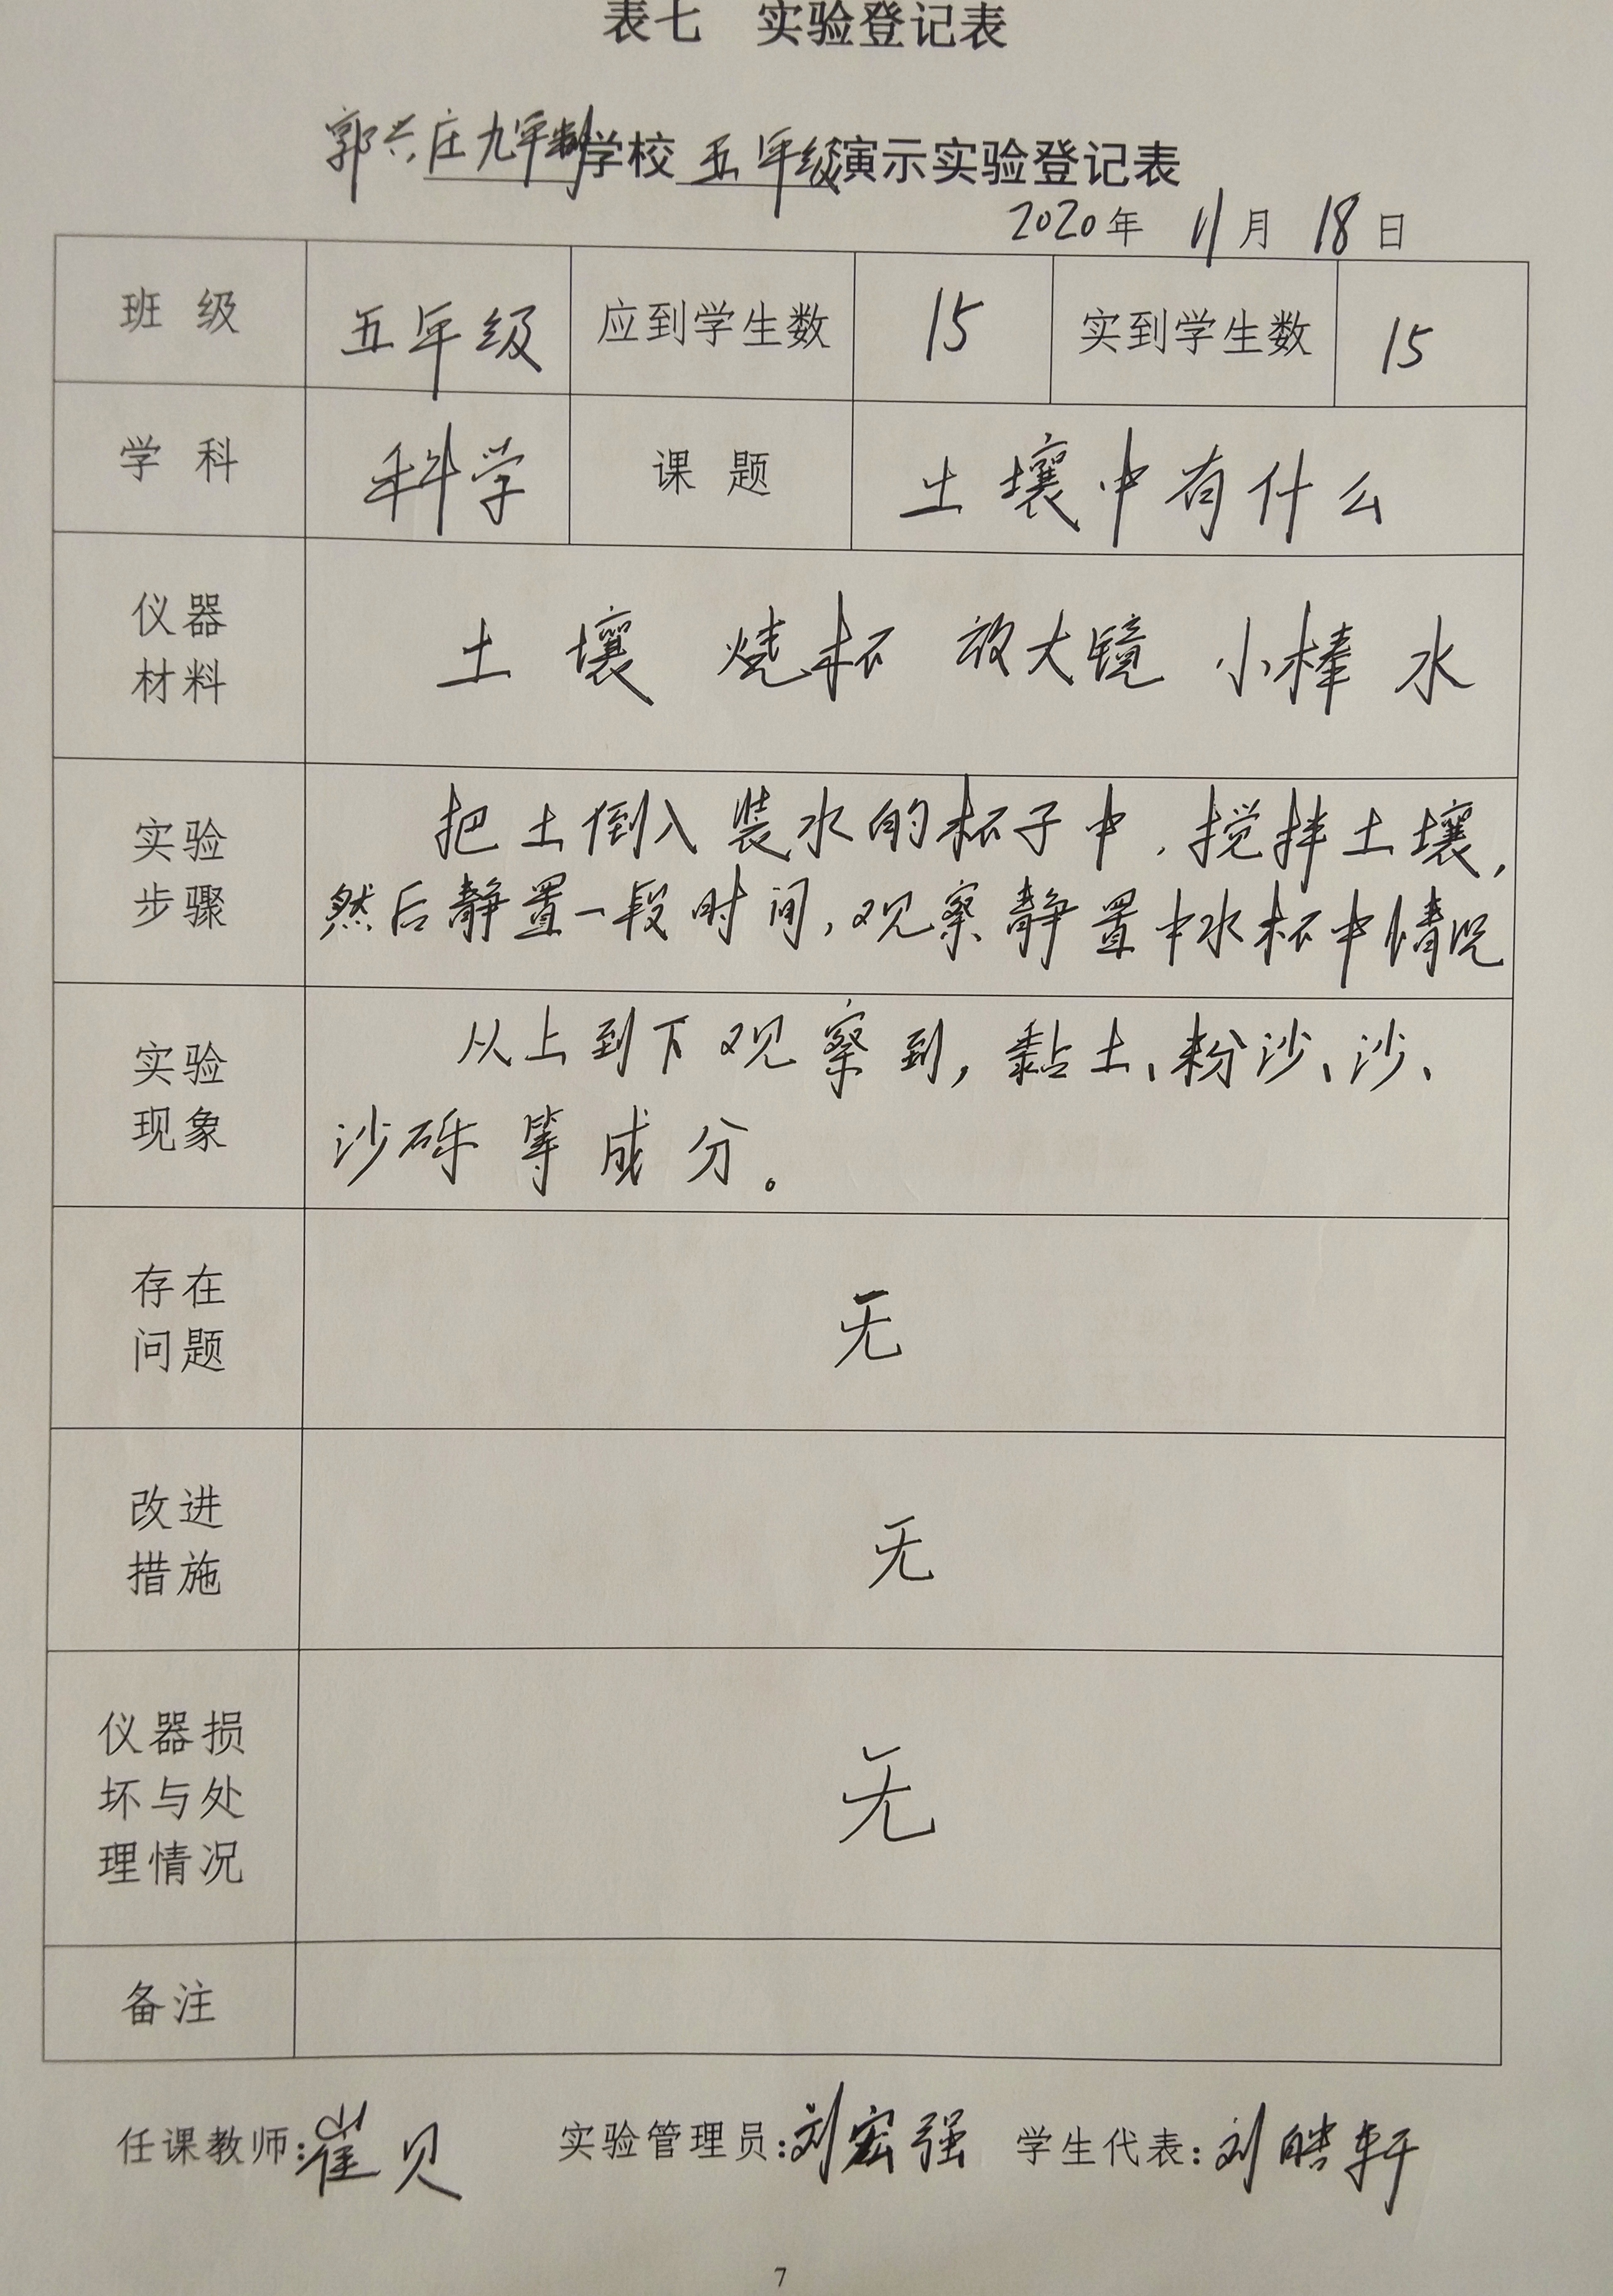 表七 实验登记表
郭兴庄九年制学校 五年级演示实验登记表
2020年 11月 18日
班 级 五年级 应到学生数 15 实到学生数 15
学 科 科学 课 题 土壤中有什么
仪器
材料
土 壤 烧杯 放大镜 小棒 水
实验
步骤
把土倒入装水的杯子中,搅拌土壤,
然后静置一段时间,观察静置中水杯中情况
实验
现象
从上到下观察到,黏土、粉沙、沙、
沙砾等成分。
存在
问题
无
改进
措施
无
仪器损
坏与处
理情况
无
备注
任课教师:崔贝 实验管理员:刘宏强 学生代表:刘皓轩
7